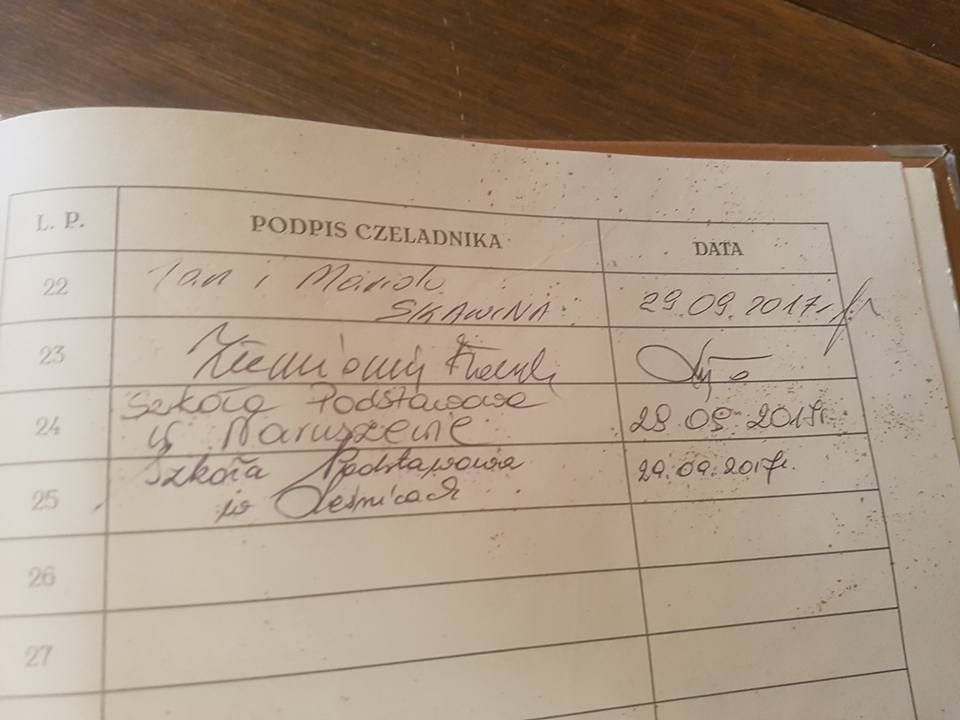 L. P. PODPIS CZELADNIKA DATA
22 Jan i Mariola
SKAWINA 29.09.2017r.
23
24 Szkoła Podstawowa
w Naruszewie 28 09 2017r.
25 Szkoła Podstawowa 29.09.2017r.
w Leśnicach
26
27